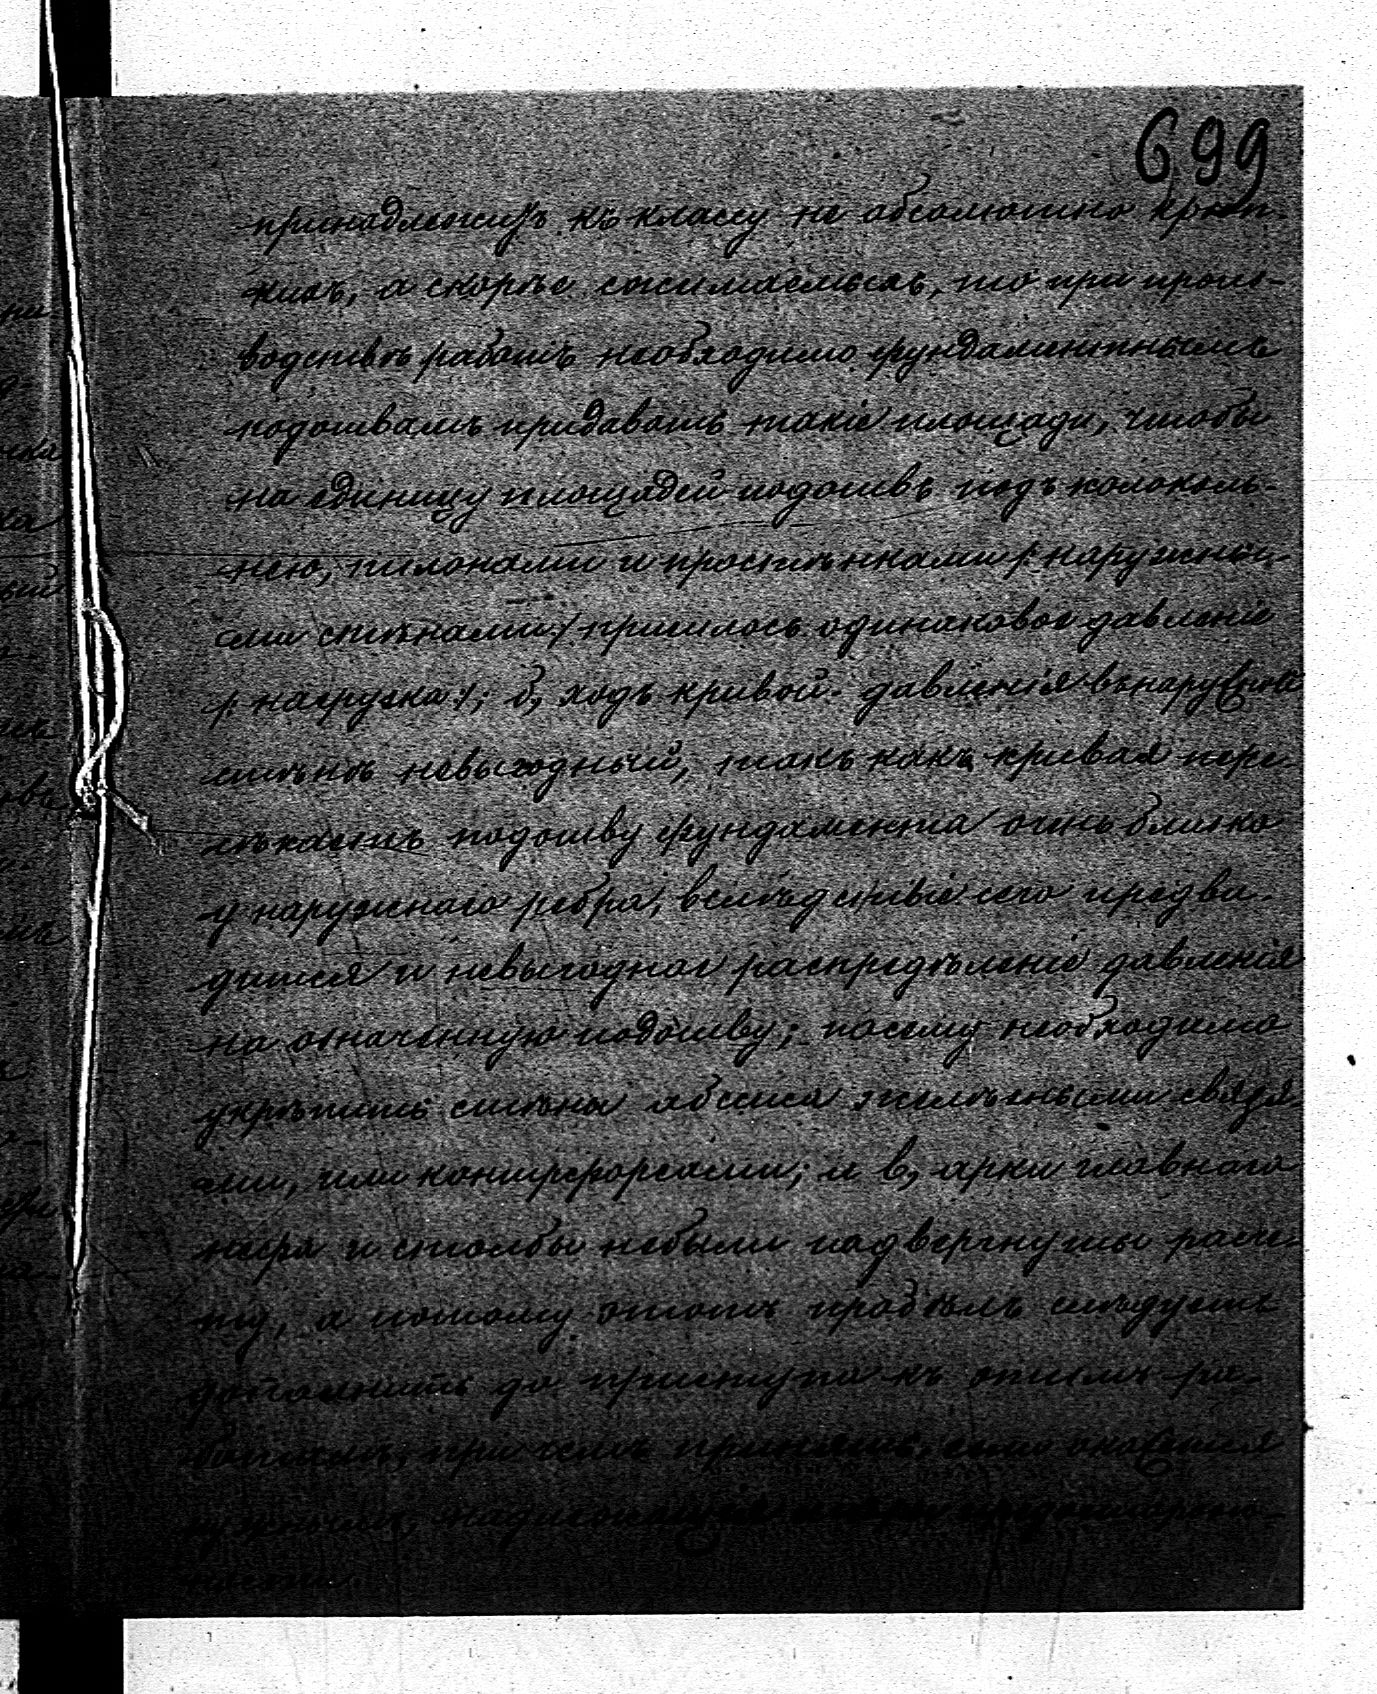 699
принадлежитъ къ классу не абсолютно крѣп-
кихъ, а скорѣе сжимаемыхъ, то при произ-
водствѣ работъ необходимо фундаментнымъ
подошвамъ придавать такіе площади, чтобы
на единицу площадей подошвъ подъ колоколь-
нею, пилонами и простѣнками /: наружны-
ми стѣнами:/ пришлось одинаковое давленіе
/: нагрузка:/; б, ходъ кривой давленія въ наружной
стѣнѣ невыгодный, такъ какъ кривая пере-
сѣкаетъ подошву фундамента очень близко
у наружнаго ребра, вслѣдствіе сего предви-
дится и невыгодное распредѣленіе давленія
на означенную подошву; посему необходимо
укрѣпить стѣны абсиса желѣзными связя-
ми, или контрфорсами; и в, арки главнаго
нефа и столбы небыли подвергнуты расче-
ту, а потому этотъ пробѣлъ слѣдуетъ
дополнить до приступа къ этимъ ра-
ботамъ, при чемъ принять, если окажется
нужнымъ, надлежащія мѣры предосторож-
ности.
ра
ска
ка
ый